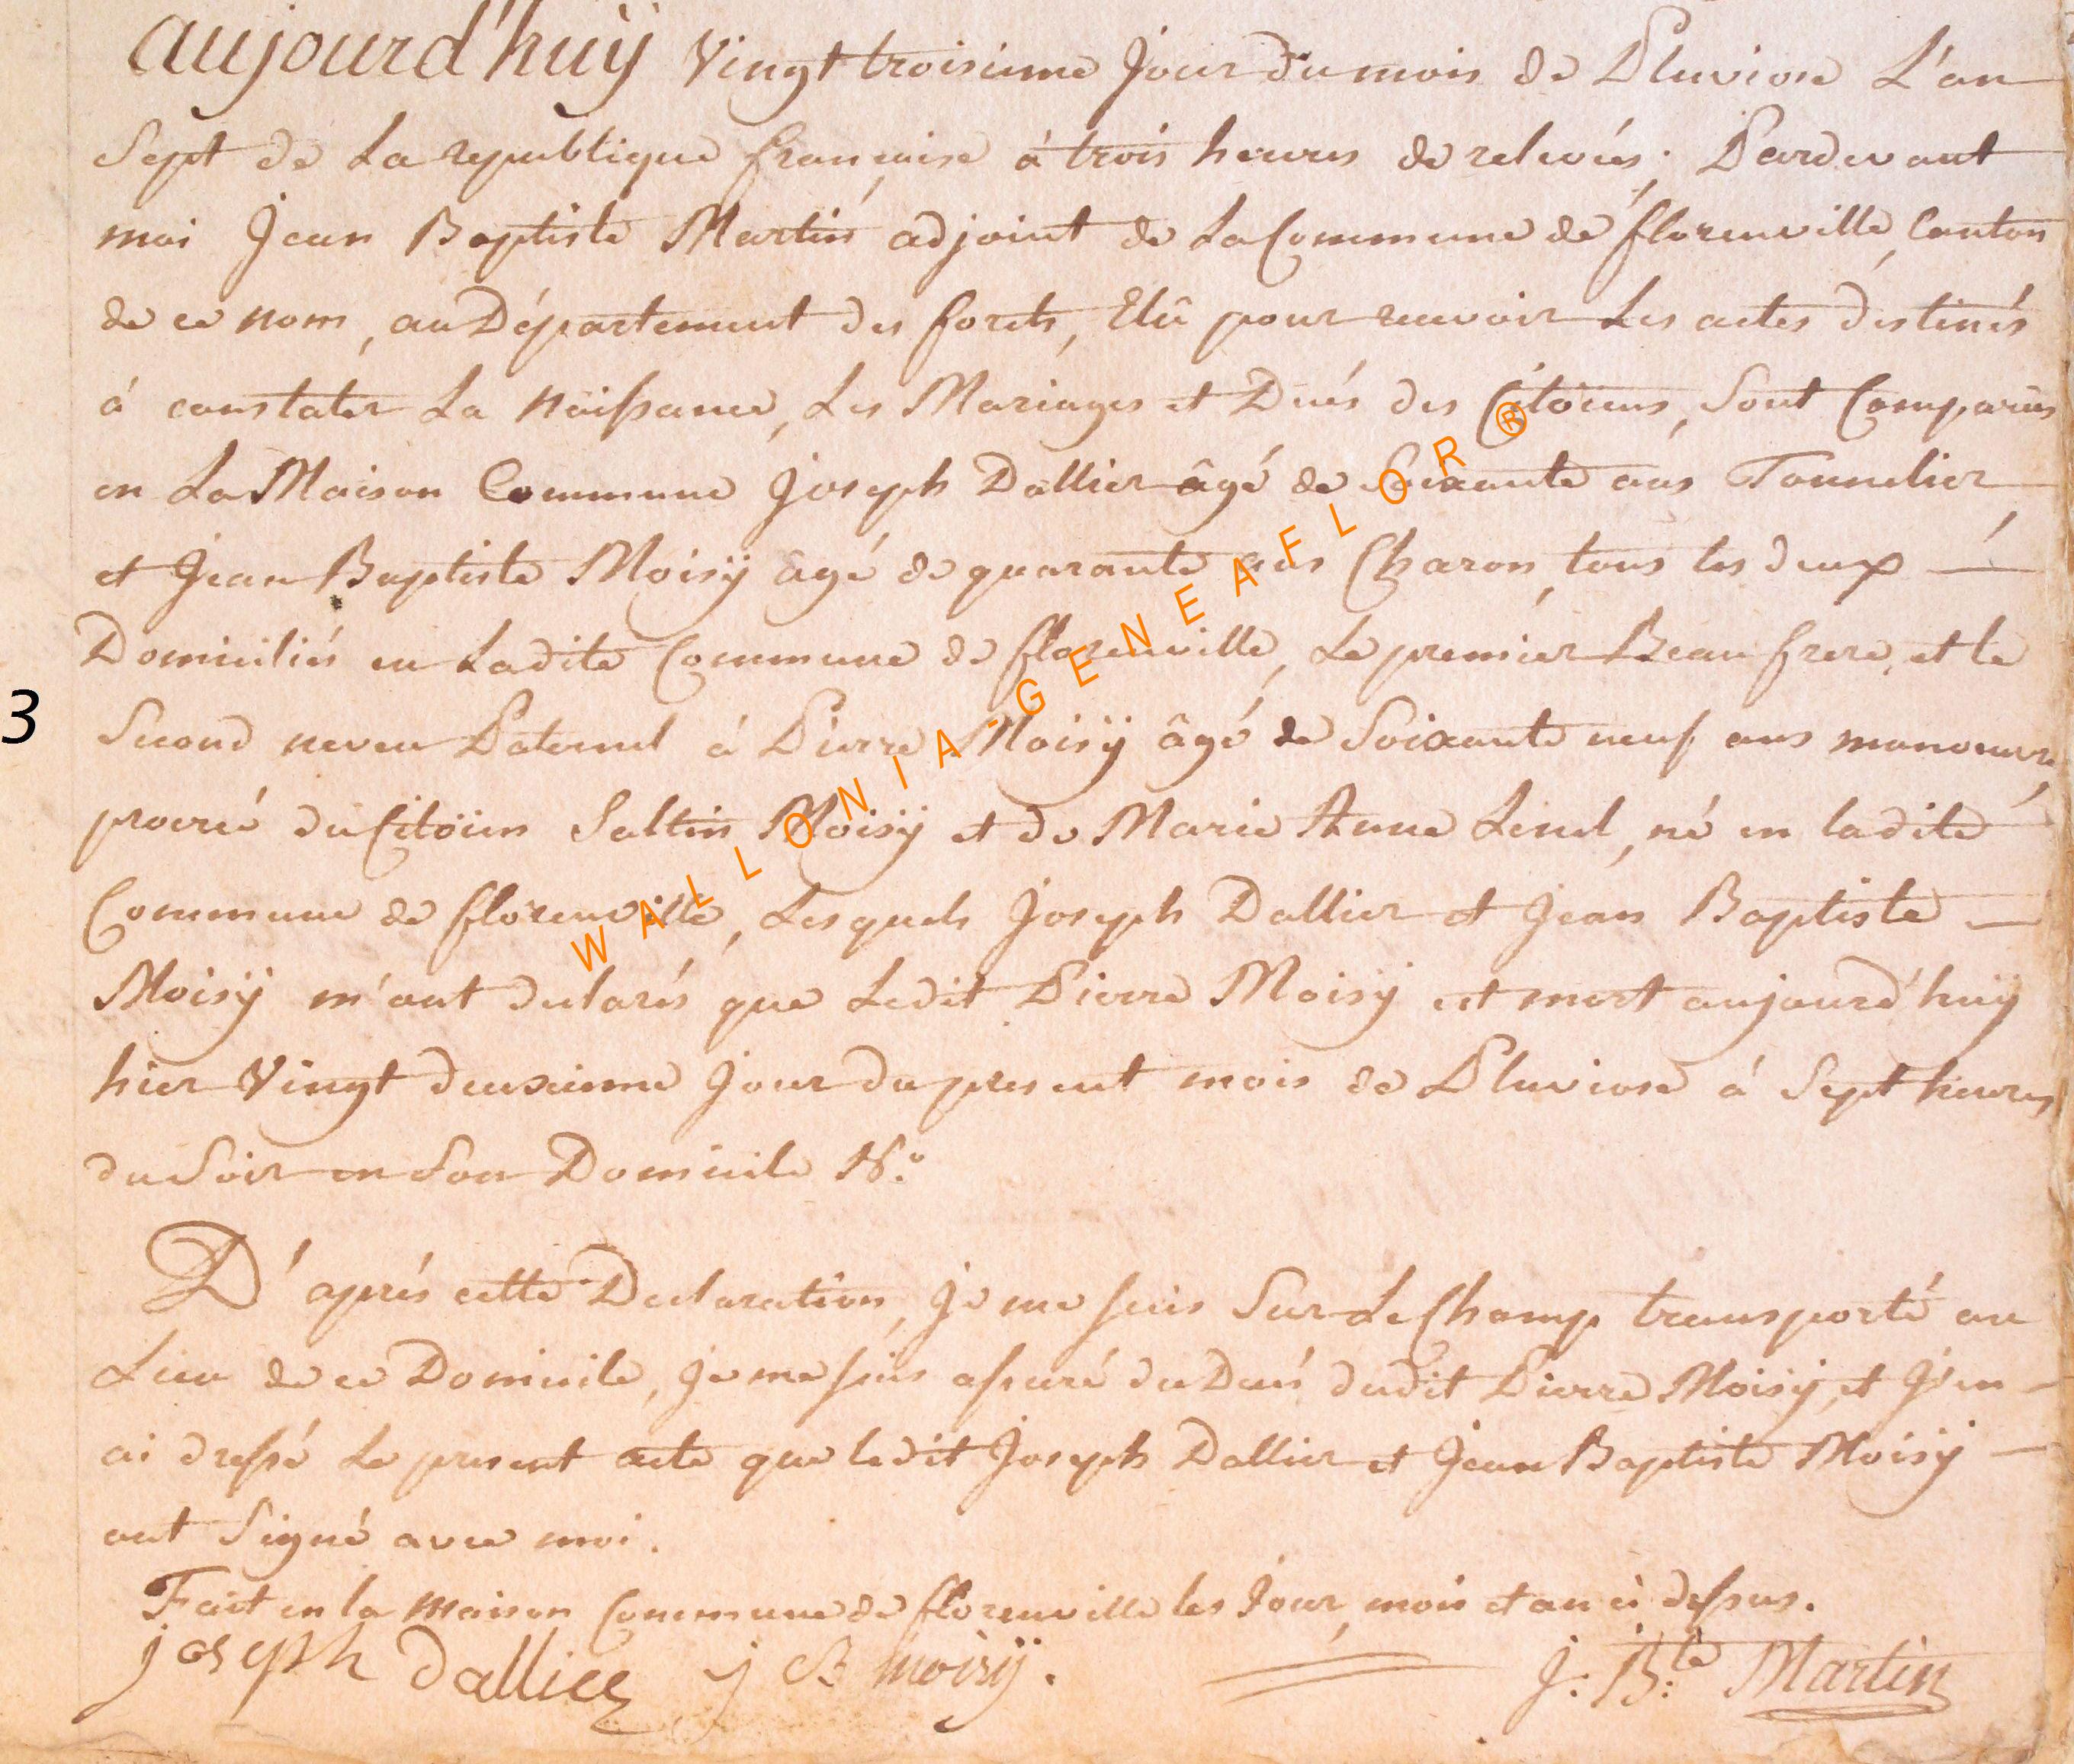 aujourd'huÿ Vingt troisieme Jour du mois de Pluviose L'an
Sept de La republique francaise à trois heures de relevés; Pardevant
moi Jean Baptiste Martin adjoint de La Commune de florenville, Canton
de ce nom, au Département des forets, Elû pour recevoir Les actes destinés
à constater La naissance, Les Mariages et Decés des Citoïens, Sont Comparus
en La Maison Commune Joseph Dallier âgé de Soixante ans Tonnelier
et Jean Baptiste Moisÿ âgé de quarante ans Charon, tous les deux —
Domiciliés en Ladite Commune de florenville, Le premier Beau frere, et le
3
Second neveu Paternel à Pierre Moisÿ âgé de Soixante neuf ans manoeuvre,
procréé du Citoïen Saltin Moisÿ et de Marie Anne Lenel, né en ladite
Commune de florenville, Lesquels Joseph Dallier et Jean Baptiste —
Moisÿ m'ont declarés que Ledit Pierre Moisÿ est mort aujourd'huÿ
hier Vingt deuxieme Jour du present mois de Pluviose à Sept heures
du Soir en Son Domicile N.o
D'aprés cette Declaration, Je me suis Sur Le Champ transporté au
Lieu de ce Domicile, Je me suis assuré du Decés dudit Pierre Moisÿ, et J'en —
ai dressé Le present acte que ledit Joseph Dallier et Jean Baptiste Moisÿ —
ont Signé avec moi.
Fait en la maison Commune de florenville les Jour, mois et an ci dessus.
joseph dallier j B moisÿ. J: B:te Martin
WALLONIA.GENEAFLOR®